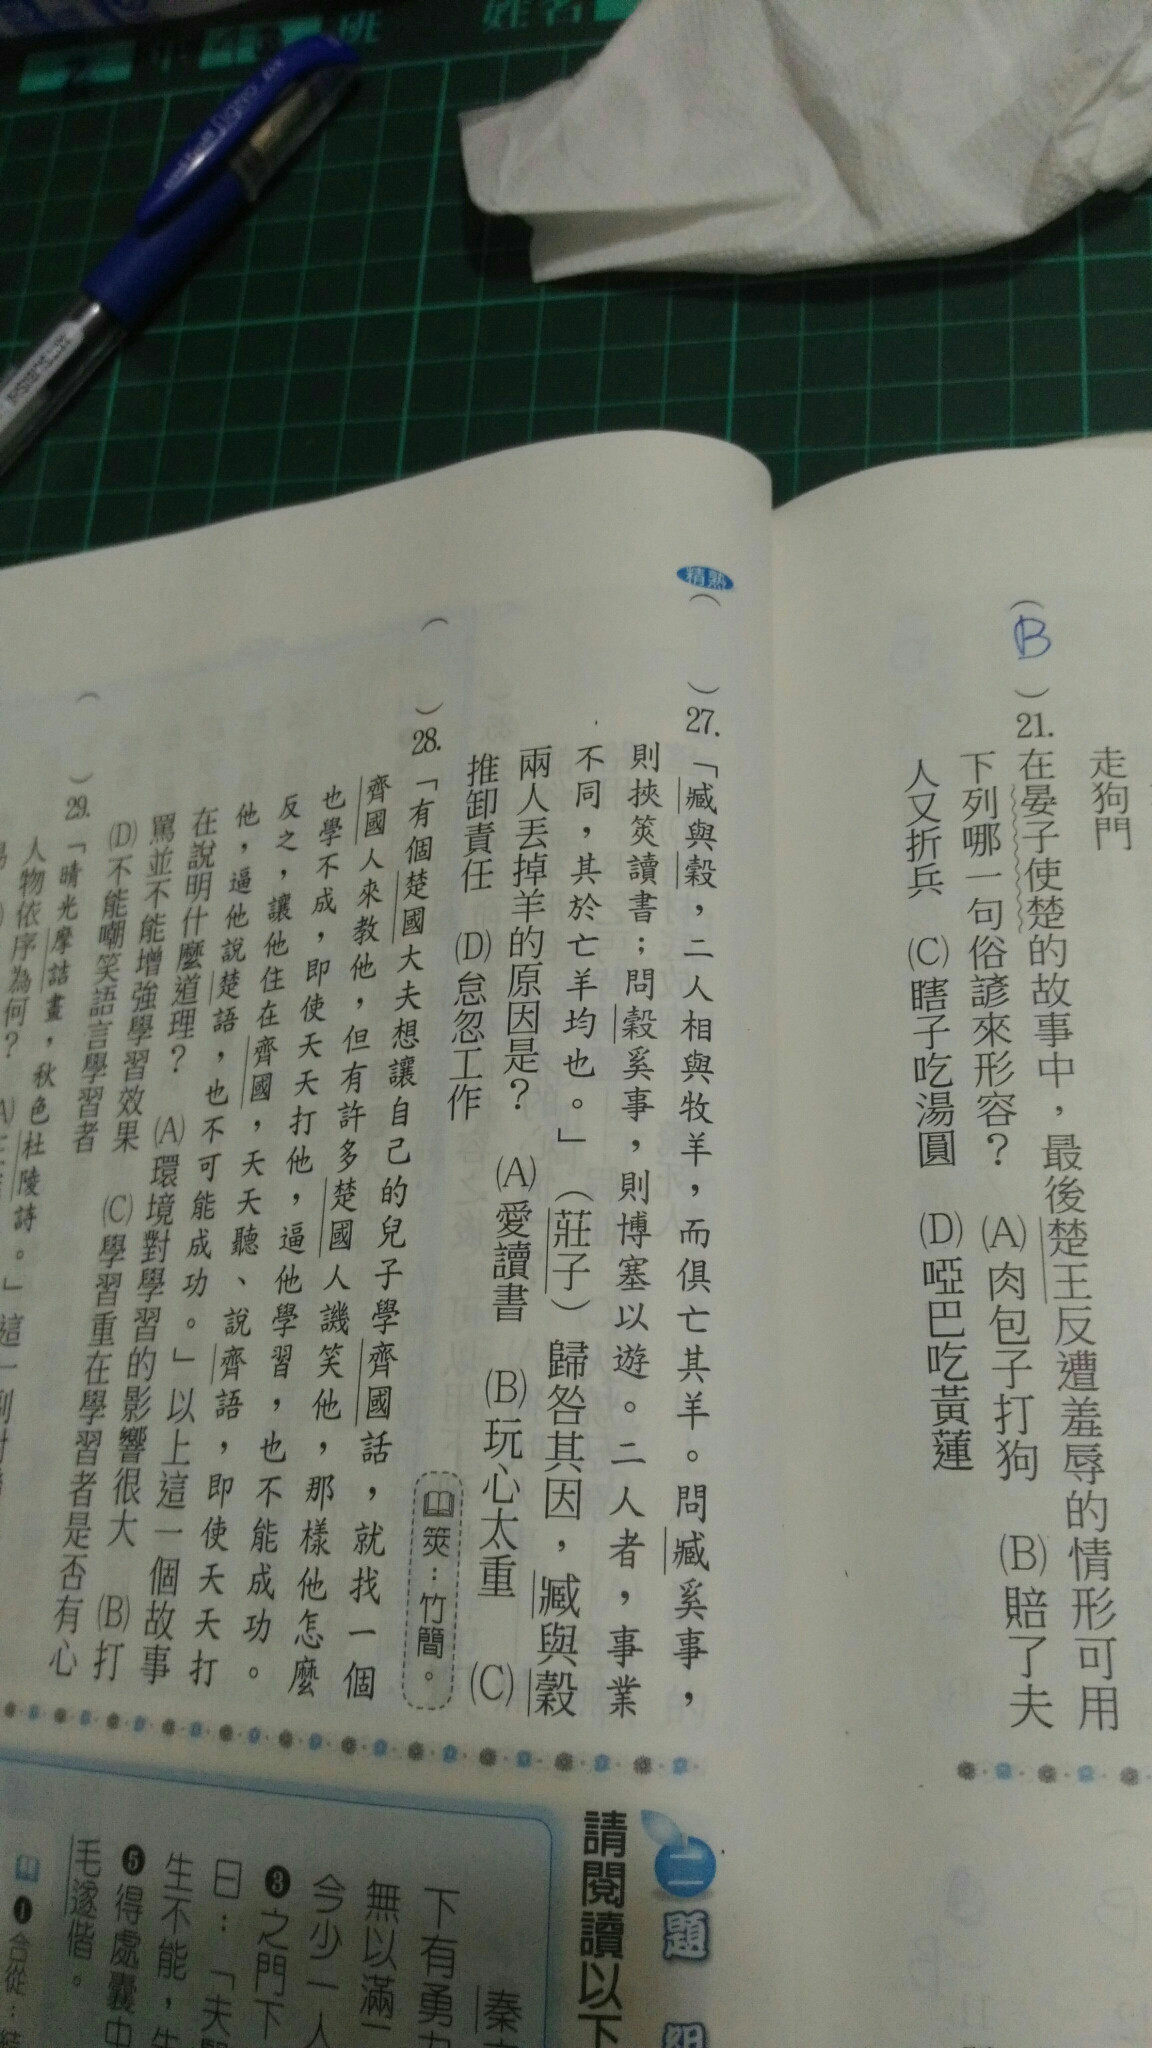 班 姓名
走狗門
( B ) 21. 在晏子使楚的故事中，最後楚王反遭羞辱的情形可用
下列哪一句俗諺來形容？ (A)肉包子打狗 (B)賠了夫
人又折兵 (C)瞎子吃湯圓 (D)啞巴吃黃蓮
精熟
( ) 27. 「臧與穀，二人相與牧羊，而俱亡其羊。問臧奚事，
則挾筴讀書；問穀奚事，則博塞以遊。二人者，事業
不同，其於亡羊均也。」（莊子）歸咎其因，臧與穀
兩人丟掉羊的原因是？ (A)愛讀書 (B)玩心太重 (C)
推卸責任 (D)怠忽工作
筴：竹簡。
( ) 28. 「有個楚國大夫想讓自己的兒子學齊國話，就找一個
齊國人來教他，但有許多楚國人譏笑他，那樣他怎麼
也學不成，即使天天打他，逼他學習，也不能成功。
反之，讓他住在齊國，天天聽、說齊語，即使天天打
他，逼他說楚語，也不可能成功。」以上這一個故事
在說明什麼道理？ (A)環境對學習的影響很大 (B)打
罵並不能增強學習效果 (C)學習重在學習者是否有心
(D)不能嘲笑語言學習者
( ) 29. 「晴光摩詰畫，秋色杜陵詩。」這一副對
人物依序為何？
二 題組
請閱讀以下
秦
下有勇力
無以滿
今少一人
❸之門下
曰：「夫賢
生不能，
❺得處囊中
毛遂偕。
❶合從：